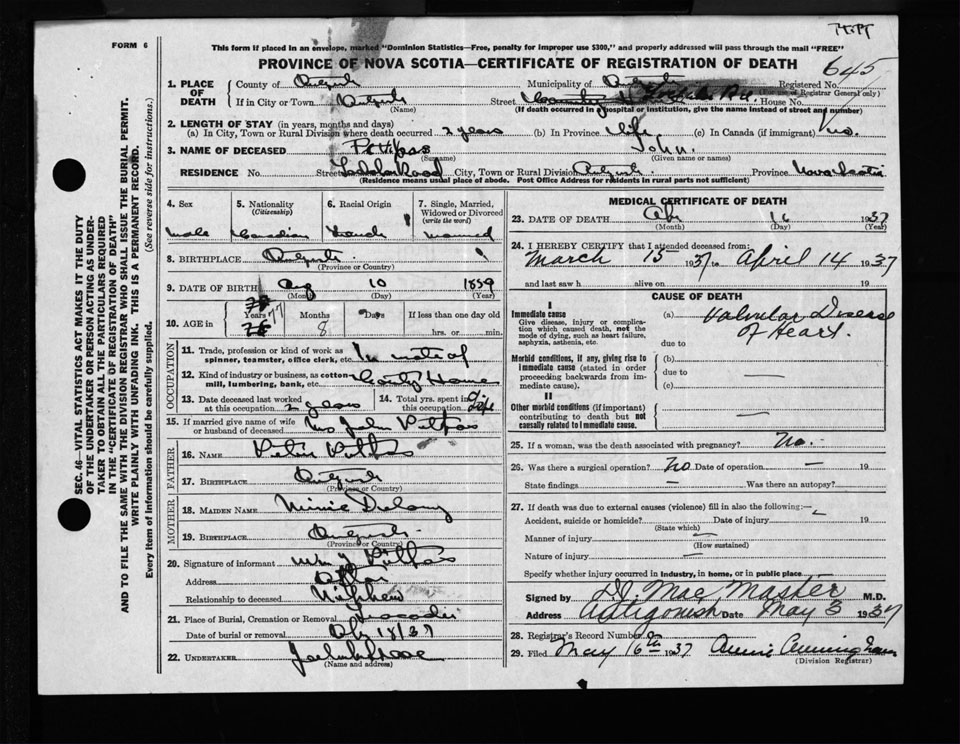 FORM 6
This form if placed in an envelope, marked "Dominion Statistics—Free, penalty for improper use $300," and properly addressed will pass through the mail "FREE"
PROVINCE OF NOVA SCOTIA—CERTIFICATE OF REGISTRATION OF DEATH
645
1. PLACE OF DEATH
County of
Municipality of
Registered No.
(For use of Registrar General only)
If in City or Town
(Name)
Street
House No.
(If death occurred in a hospital or institution, give the name instead of street and number)
2. LENGTH OF STAY (in years, months and days)
(a) In City, Town or Rural Division where death occurred 2 years (b) In Province Life (c) In Canada (if immigrant) no.
3. NAME OF DECEASED Pettipas John.
(Surname) (Given name or names)
RESIDENCE No. Street City, Town or Rural Division Province Nova Scotia
(Residence means usual place of abode. Post Office Address for residents in rural parts not sufficient)
4. Sex
Male
5. Nationality (Citizenship)
Canadian
6. Racial Origin
French
7. Single, Married, Widowed or Divorced (write the word)
Married
8. BIRTHPLACE
(Province or Country)
9. DATE OF BIRTH Aug 10 1859
(Month) (Day) (Year)
10. AGE in Years Months Days If less than one day old
77 8 hrs. or min.
OCCUPATION
11. Trade, profession or kind of work as spinner, teamster, office clerk, etc.
12. Kind of industry or business, as cotton mill, lumbering, bank, etc. County Home
13. Date deceased last worked at this occupation 2 years
14. Total yrs. spent in this occupation Life
15. If married give name of wife or husband of deceased Mrs John Pettipas
FATHER
16. NAME Peter Pettipas
17. BIRTHPLACE
(Province or Country)
MOTHER
18. MAIDEN NAME
19. BIRTHPLACE
(Province or Country)
20. Signature of informant
Address
Relationship to deceased Nephew
21. Place of Burial, Cremation or Removal
Date of burial or removal 18/37
22. UNDERTAKER
(Name and address)
MEDICAL CERTIFICATE OF DEATH
23. DATE OF DEATH 16 1937
(Month) (Day) (Year)
24. I HEREBY CERTIFY that I attended deceased from:
March 15 1937 to April 14 1937
and last saw h alive on 19
CAUSE OF DEATH
I
Immediate cause
Give disease, injury or complication which caused death, not the mode of dying, such as heart failure, asphyxia, asthenia, etc.
(a) Valvular Disease of Heart.
due to
Morbid conditions, if any, giving rise to immediate cause (stated in order proceeding backwards from immediate cause).
(b)
due to —
(c)
II
Other morbid conditions (if important) contributing to death but not causally related to immediate cause.
—
25. If a woman, was the death associated with pregnancy? No.
26. Was there a surgical operation? No Date of operation — 19
State findings — Was there an autopsy?
27. If death was due to external causes (violence) fill in also the following:—
Accident, suicide or homicide? — Date of injury 19
(State which)
Manner of injury —
(How sustained)
Nature of injury —
Specify whether injury occurred in industry, in home, or in public place
Signed by MacMaster M.D.
Address Antigonish Date May 3 1937
28. Registrar's Record Number
29. Filed May 16th 1937 Annie Cunningham
(Division Registrar)
SEC. 46—VITAL STATISTICS ACT MAKES IT THE DUTY
OF THE UNDERTAKER OR PERSON ACTING AS UNDER-
TAKER TO OBTAIN ALL THE PARTICULARS REQUIRED
IN THE "CERTIFICATE OF REGISTRATION OF DEATH"
AND TO FILE THE SAME WITH THE DIVISION REGISTRAR WHO SHALL ISSUE THE BURIAL PERMIT.
WRITE PLAINLY WITH UNFADING INK. THIS IS A PERMANENT RECORD.
Every item of information should be carefully supplied. (See reverse side for instructions.)